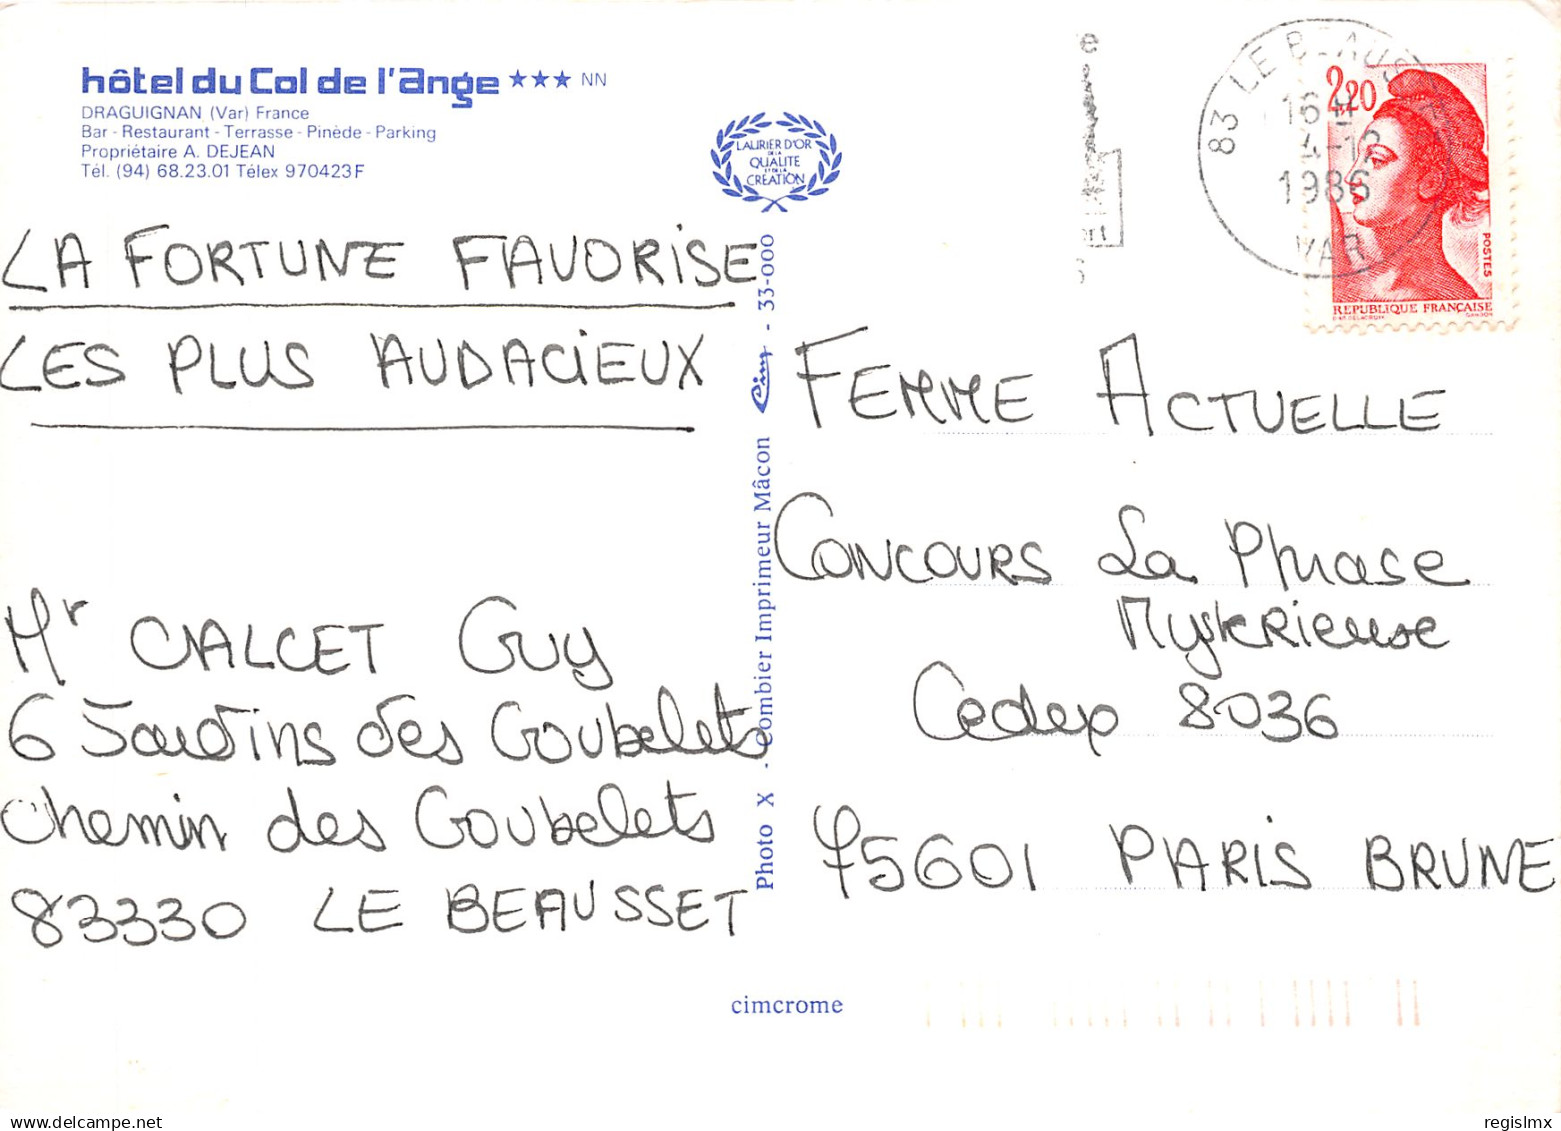 hôtel du Col de l'ange ★★★ NN
DRAGUIGNAN (Var) France
Bar - Restaurant - Terrasse - Pinède - Parking
Propriétaire A. DEJEAN
Tél. (94) 68.23.01 Télex 970423 F
LAURIER D'OR
DE LA
QUALITE
ET DE LA
CRÉATION
LA FORTUNE FAVORISE
LES PLUS AUDACIEUX
Mr CALCET Guy
6 Jardins des Goubelets
Chemin des Goubelets
83330 LE BEAUSSET
Photo X - Combier Imprimeur Mâcon Cim - 33-000
cimcrome
83 LE BEAUSSET
16 H
4-12
1986
VAR
2,20
POSTES
REPUBLIQUE FRANÇAISE
FEMME ACTUELLE
CONCOURS La Phrase
Mysterieuse
Cedex 8036
75601 PARIS BRUNE
regislmx